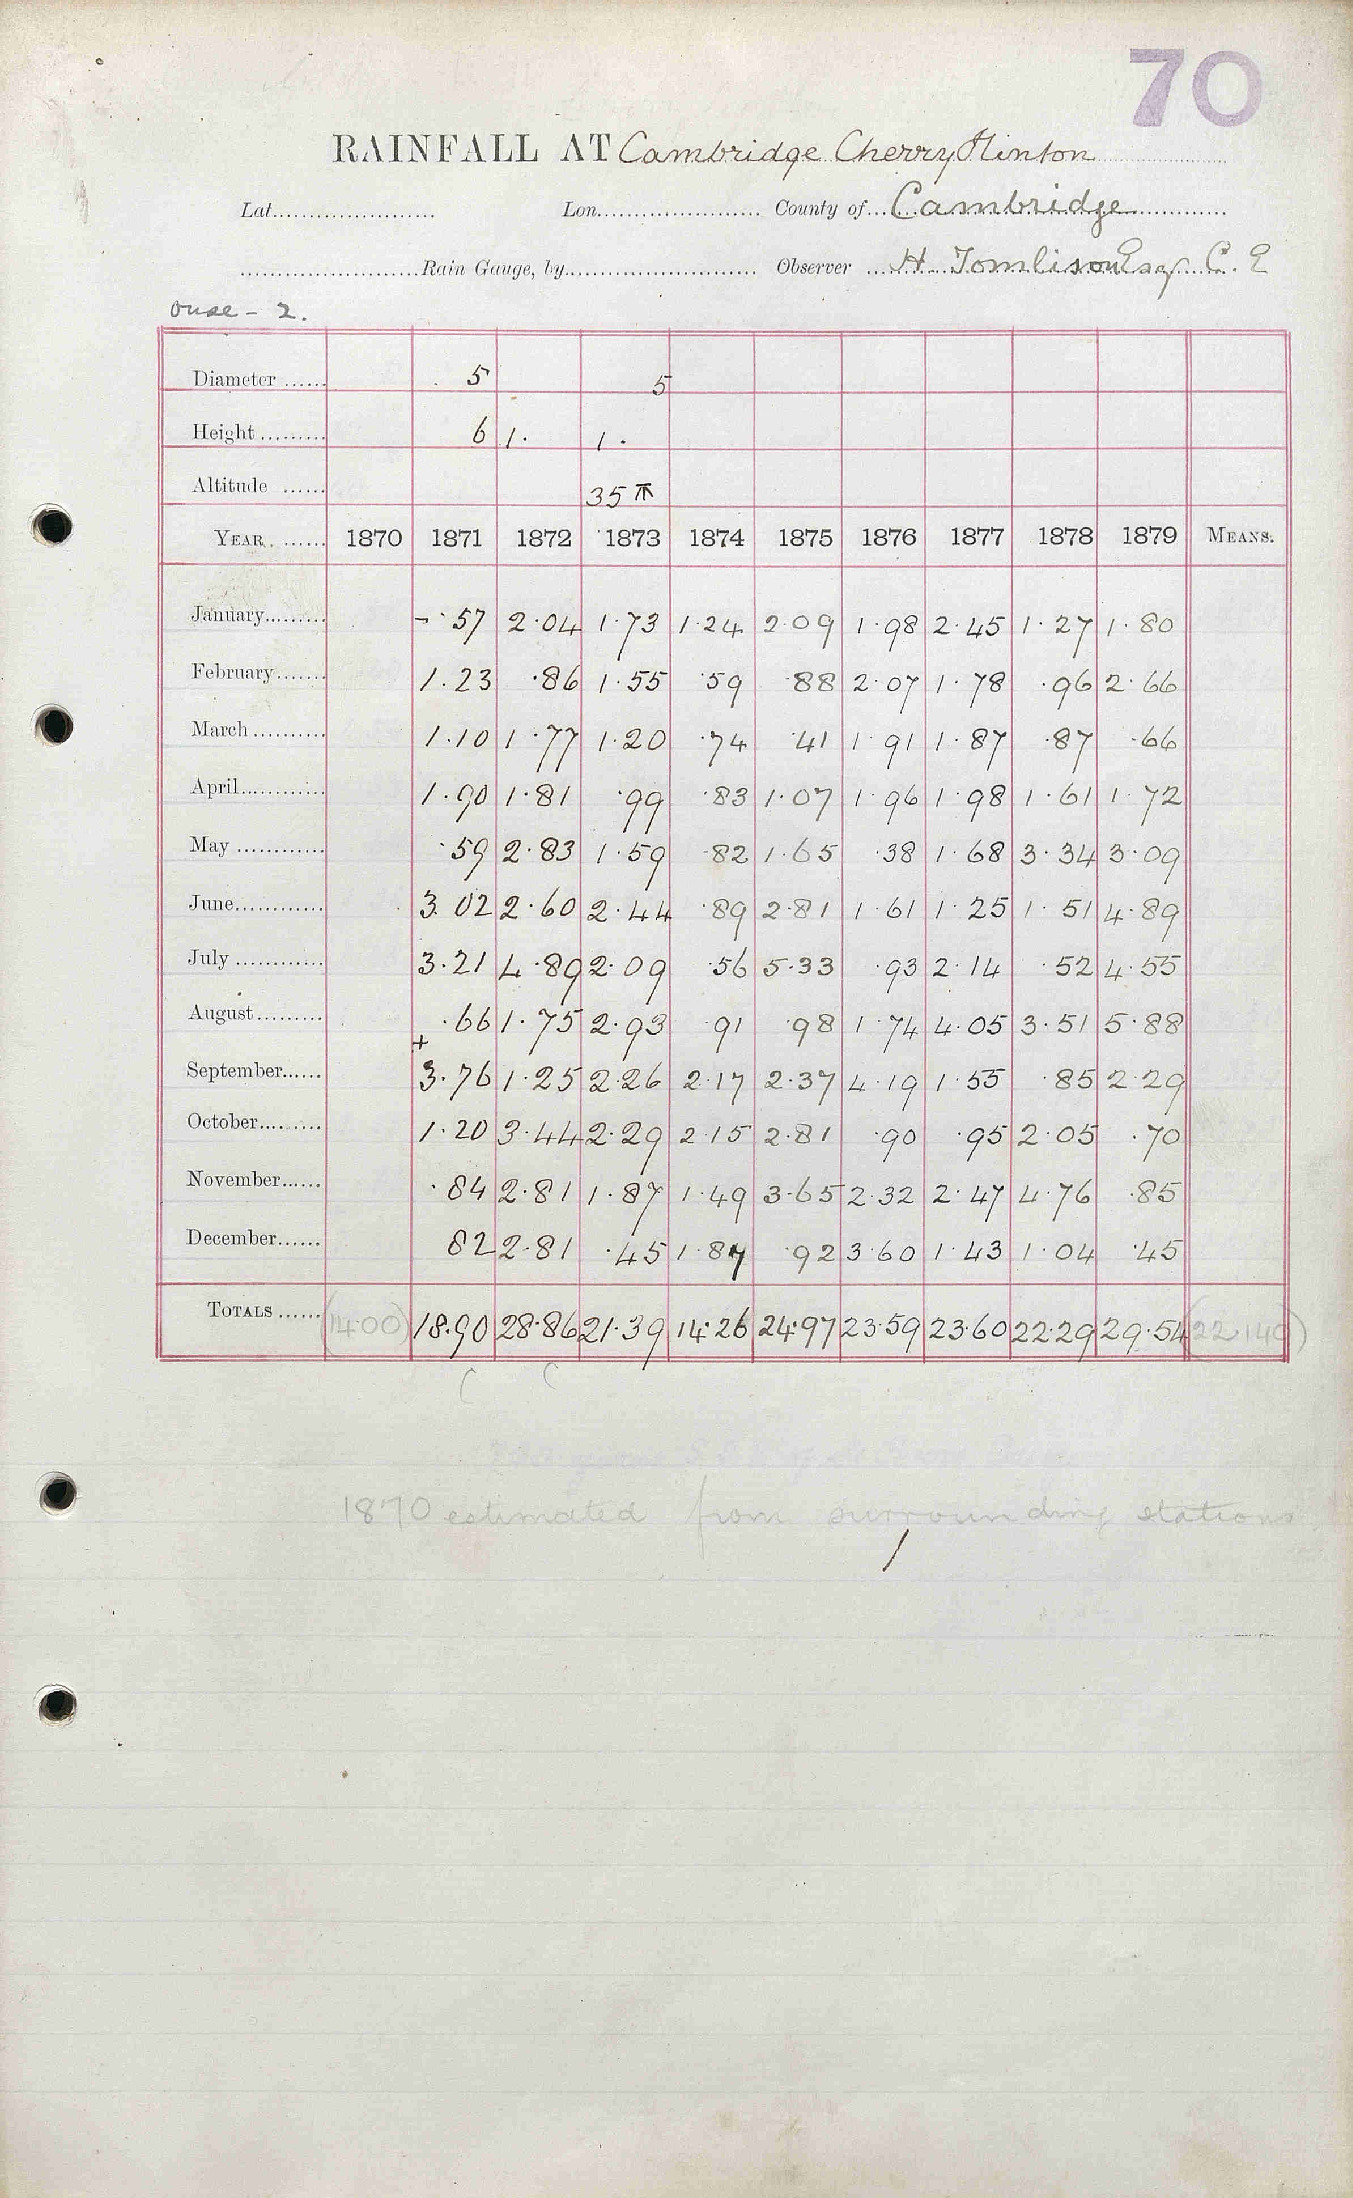 70
RAINFALL AT Cambridge Cherry Hinton
Lat. Lon. County of Cambridge
Rain Gauge, by Observer H. Tomlison Esq C. E
Ouse - 2.
Diameter 5 5
Height 6 1. 1.
Altitude 35
YEAR 1870 1871 1872 1873 1874 1875 1876 1877 1878 1879 MEANS.
January ·57 2·04 1·73 1·24 2·09 1·98 2·45 1·27 1·80
February 1·23 ·86 1·55 ·59 ·88 2·07 1·78 ·96 2·66
March 1·10 1·77 1·20 ·74 ·41 1·91 1·87 ·87 ·66
April 1·90 1·81 ·99 ·83 1·07 1·96 1·98 1·61 1·72
May ·59 2·83 1·59 ·82 1·65 ·38 1·68 3·34 3·09
June 3·02 2·60 2·44 ·89 2·81 1·61 1·25 1·51 4·89
July 3·21 4·89 2·09 ·56 5·33 ·93 2·14 ·52 4·55
August ·66 1·75 2·93 ·91 ·98 1·74 4·05 3·51 5·88
+
September 3·76 1·25 2·26 2·17 2·37 4·19 1·55 ·85 2·29
October 1·20 3·44 2·29 2·15 2·81 ·90 ·95 2·05 ·70
November ·84 2·81 1·87 1·49 3·65 2·32 2·47 4·76 ·85
December 82 2·81 ·45 1·87 ·92 3·60 1·43 1·04 ·45
TOTALS (1400) 18·90 28·86 21·39 14·26 24·97 23·59 23·60 22·29 29·54 (22 140)
1870 estimated from surrounding stations